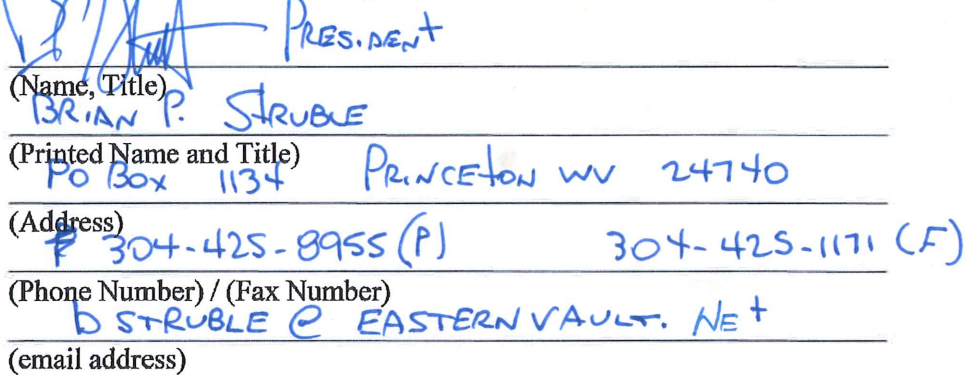 PRESIDENT
(Name, Title)
BRIAN P. STRUBLE
(Printed Name and Title)
PO BOX 1134 PRINCETON WV 24740
(Address)
304-425-8955 (P) 304-425-1171 (F)
(Phone Number) / (Fax Number)
b STRUBLE @ EASTERNVAULT. NEt
(email address)